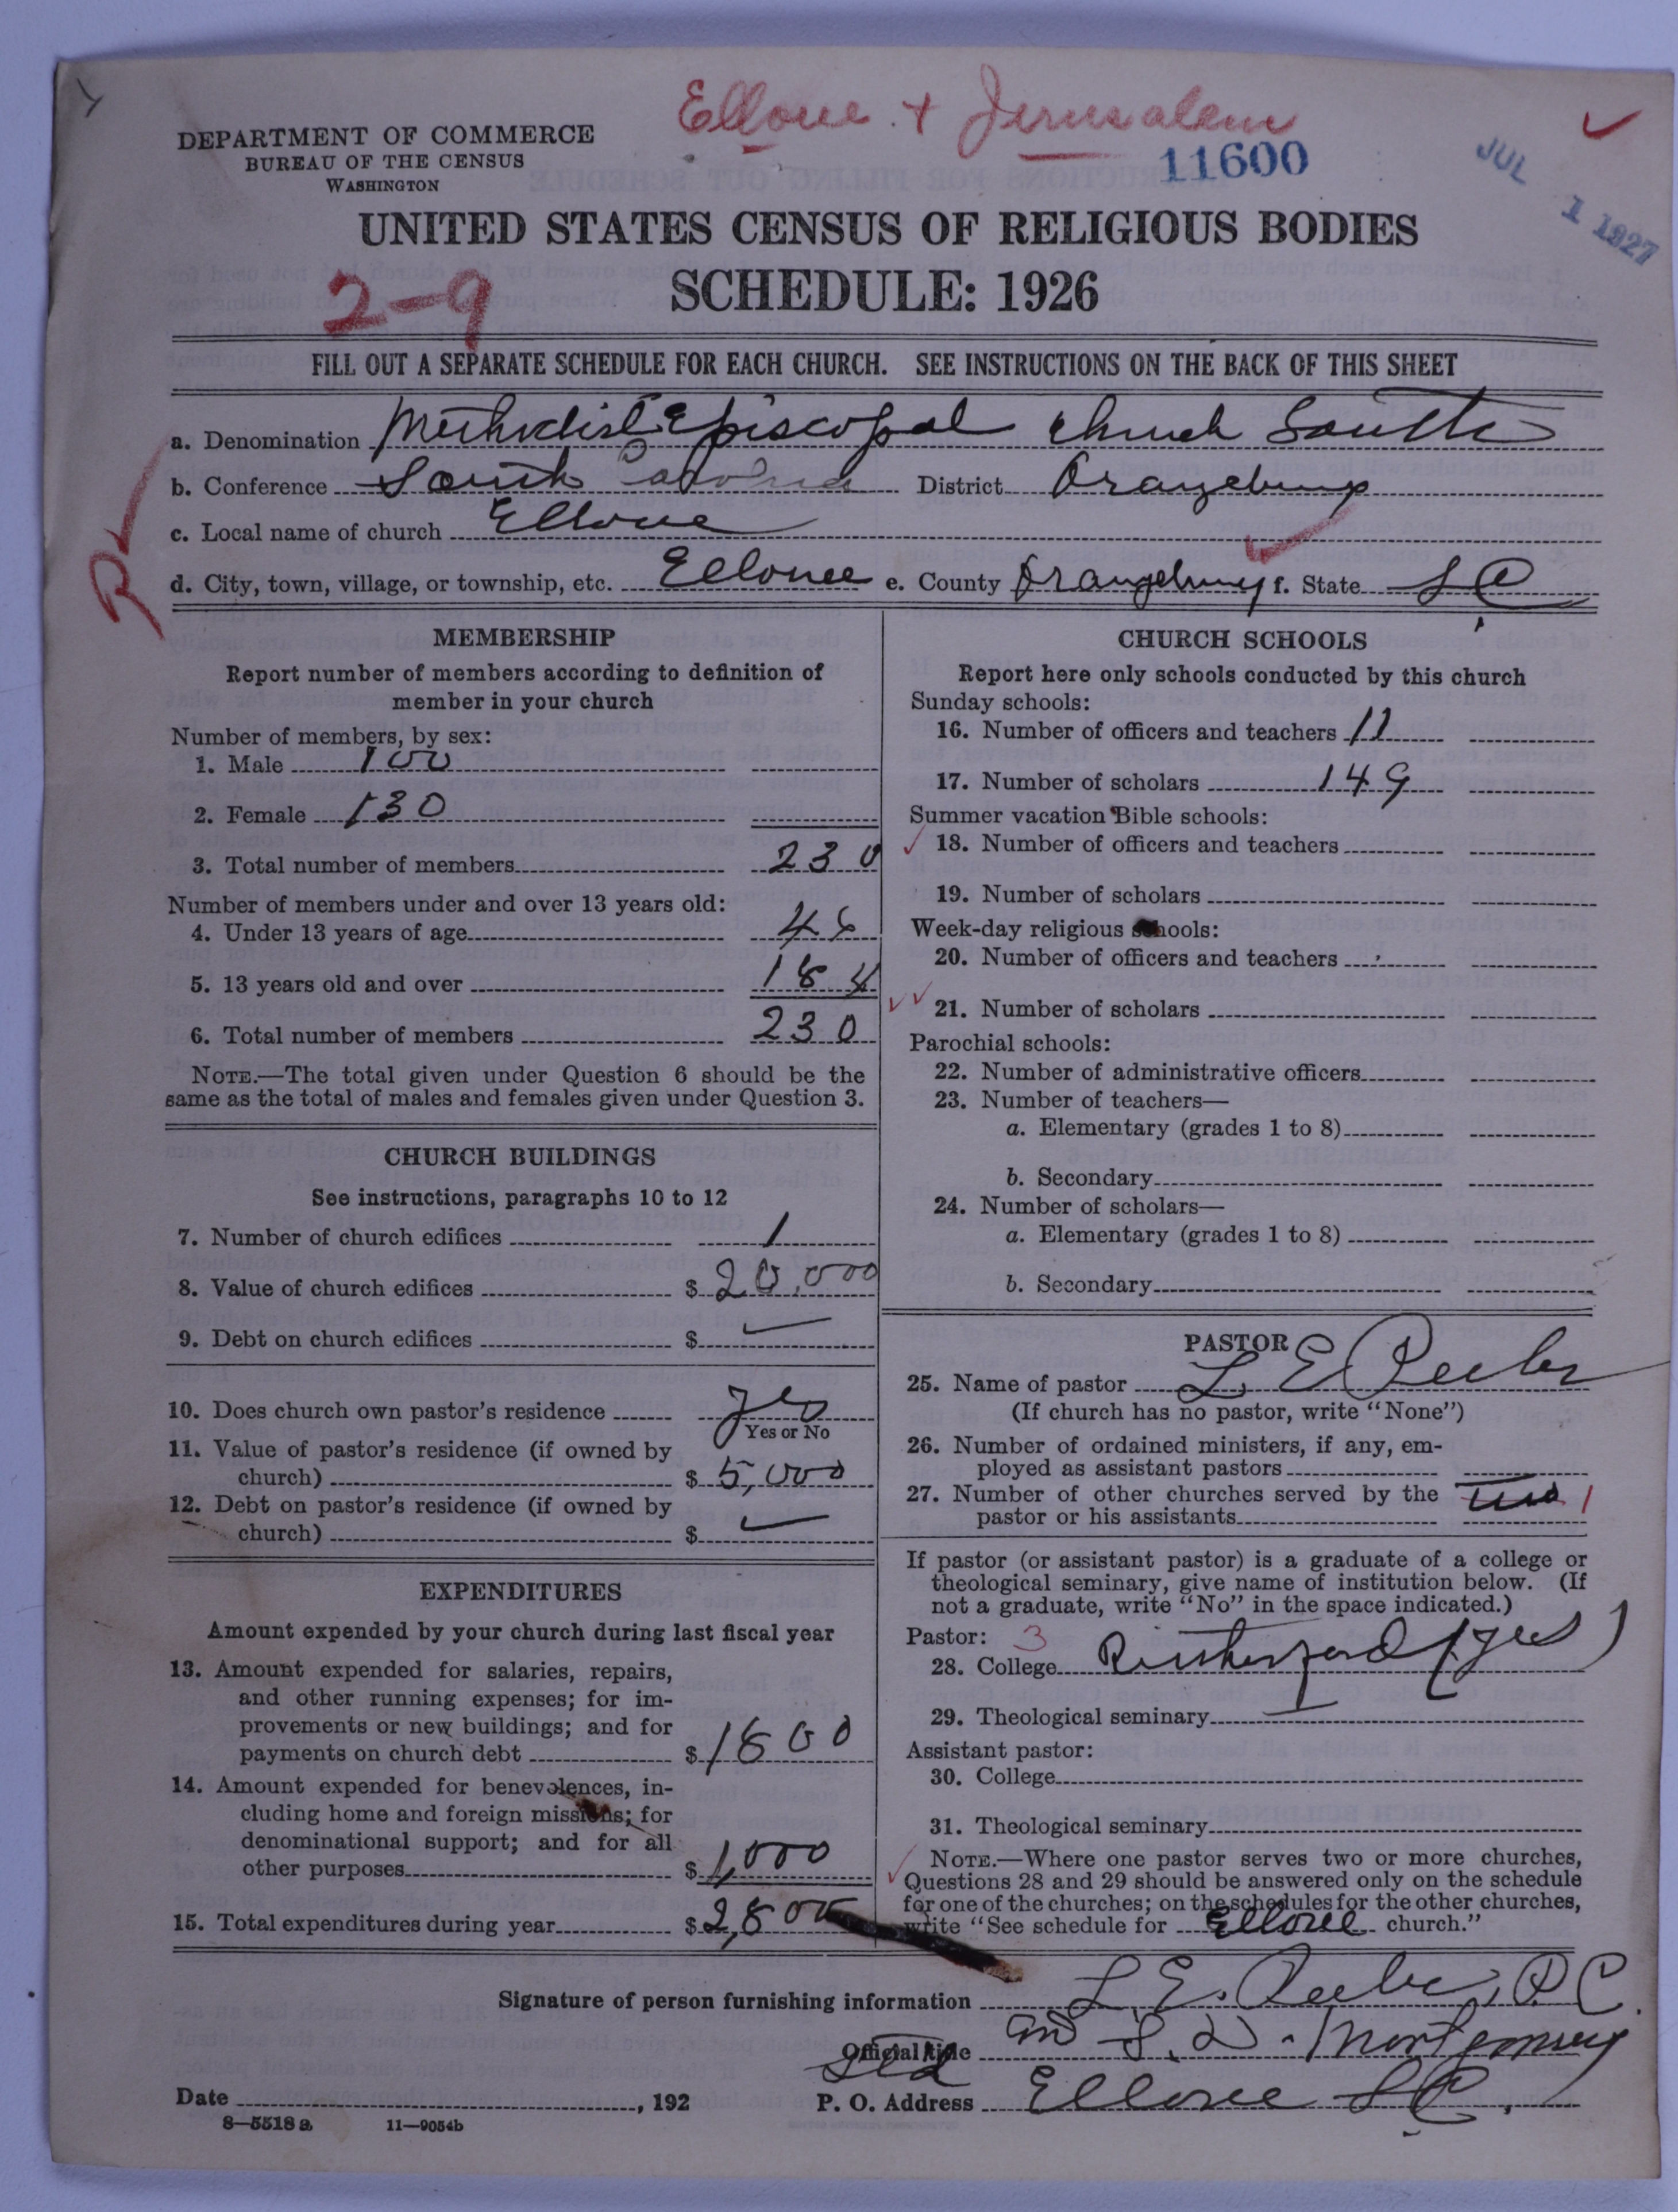 Elloree + Jerusalem
DEPARTMENT OF COMMERCE
BUREAU OF THE CENSUS
WASHINGTON
11600
JUL 1 1927
UNITED STATES CENSUS OF RELIGIOUS BODIES
SCHEDULE: 1926
2-9
FILL OUT A SEPARATE SCHEDULE FOR EACH CHURCH. SEE INSTRUCTIONS ON THE BACK OF THIS SHEET
a. Denomination Methodist Episcopal Church South
b. Conference South Carolina District Orangeburg
c. Local name of church Elloree
d. City, town, village, or township, etc. Elloree e. County Orangeburg f. State S C
R
MEMBERSHIP
Report number of members according to definition of
member in your church
Number of members, by sex:
1. Male 100
2. Female 130
3. Total number of members 230
Number of members under and over 13 years old:
4. Under 13 years of age 46
5. 13 years old and over 184
6. Total number of members 230
NOTE.—The total given under Question 6 should be the
same as the total of males and females given under Question 3.
CHURCH BUILDINGS
See instructions, paragraphs 10 to 12
7. Number of church edifices 1
8. Value of church edifices $ 20,000
9. Debt on church edifices $
10. Does church own pastor's residence yes
Yes or No
11. Value of pastor's residence (if owned by
church) $ 5,000
12. Debt on pastor's residence (if owned by
church) $
EXPENDITURES
Amount expended by your church during last fiscal year
13. Amount expended for salaries, repairs,
and other running expenses; for im-
provements or new buildings; and for
payments on church debt $ 1800
14. Amount expended for benevolences, in-
cluding home and foreign missions; for
denominational support; and for all
other purposes $ 1,000
15. Total expenditures during year $ 2,800
CHURCH SCHOOLS
Report here only schools conducted by this church
Sunday schools:
16. Number of officers and teachers 11
17. Number of scholars 149
Summer vacation Bible schools:
18. Number of officers and teachers
19. Number of scholars
Week-day religious schools:
20. Number of officers and teachers
21. Number of scholars
Parochial schools:
22. Number of administrative officers
23. Number of teachers—
a. Elementary (grades 1 to 8)
b. Secondary
24. Number of scholars—
a. Elementary (grades 1 to 8)
b. Secondary
PASTOR
25. Name of pastor L E Peeler
(If church has no pastor, write "None")
26. Number of ordained ministers, if any, em-
ployed as assistant pastors
27. Number of other churches served by the
pastor or his assistants 1
If pastor (or assistant pastor) is a graduate of a college or
theological seminary, give name of institution below. (If
not a graduate, write "No" in the space indicated.)
Pastor: 3
28. College Rutherford (yes)
29. Theological seminary
Assistant pastor:
30. College
31. Theological seminary
NOTE.—Where one pastor serves two or more churches,
Questions 28 and 29 should be answered only on the schedule
for one of the churches; on the schedules for the other churches,
write "See schedule for Elloree church."
Signature of person furnishing information L. E. Peeler, P C.
Official title and S. D. Montgomery
Date , 192 P. O. Address Elloree S C.
8—5518 a 11—9054b